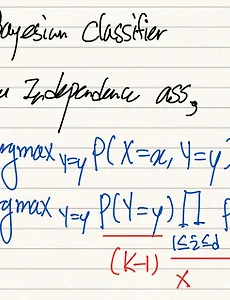 Bayesian Classifier
Independence ass,
argmax Y=y P(X=x, Y=y)
argmax Y=y P(Y=y) ∏
1≤i≤d
(K-1) x